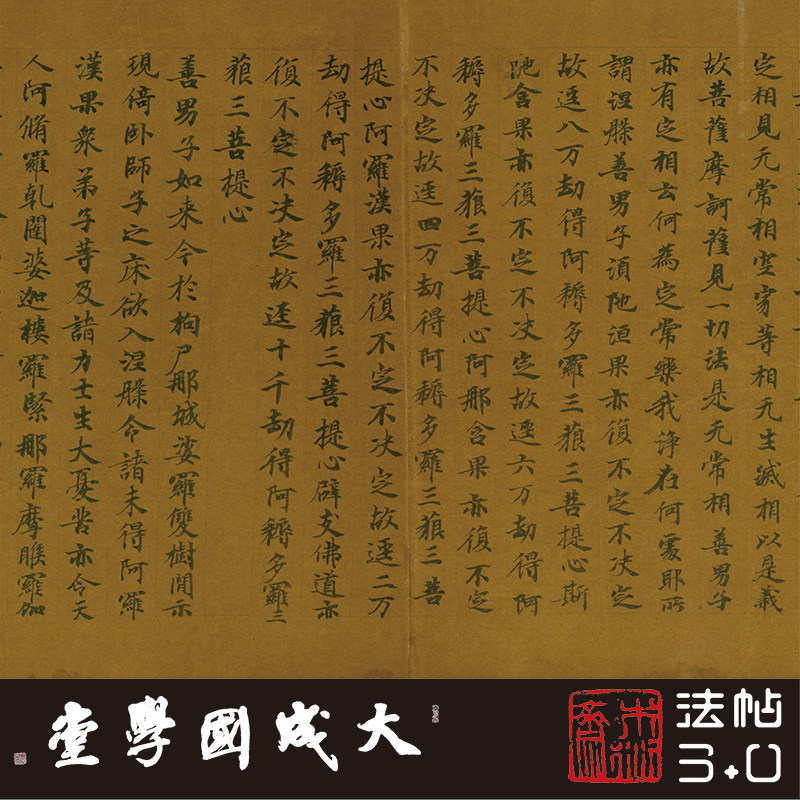 定相見无常相空寂等相无生滅相以是義
故菩薩摩訶薩見一切法是无常相善男子
亦有定相云何為定常樂我淨在何處耶所
謂涅槃善男子湏陁洹果亦復不定不决定
故逕八万劫得阿耨多羅三藐三菩提心斯
陁含果亦復不定不决定故逕六万劫得阿
耨多羅三藐三菩提心阿那含果亦復不定
不决定故逕四万劫得阿耨多羅三藐三菩
提心阿羅漢果亦復不定不决定故逕二万
劫得阿耨多羅三藐三菩提心辟支佛道亦
復不定不决定故逕十千劫得阿耨多羅三
藐三菩提心
善男子如来今於拘尸那城娑羅雙樹閒示
現倚卧師子之床欲入涅槃令諸未得阿羅
漢果衆弟子等及諸力士生大憂苦亦令天
人阿脩羅乹闥婆迦樓羅緊那羅摩睺羅伽
大成國學堂
法帖
3.0